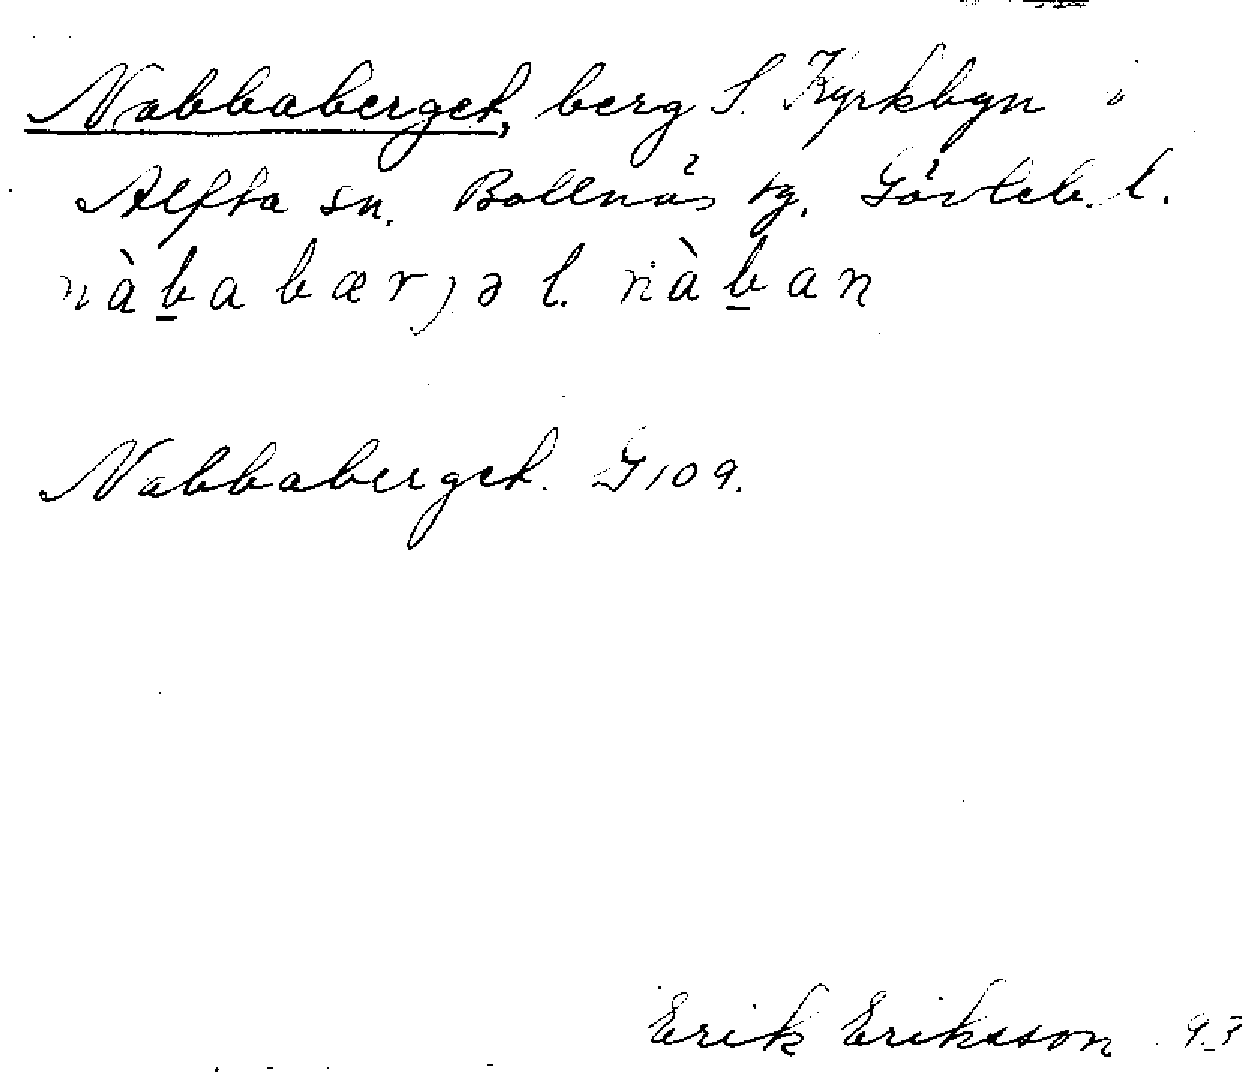 Nabbaberget, berg S. Kyrkbyn i
Alfta sn. Bollnäs tg. Gävleb. l.
nàb̲abærjə l. nàb̲an
Nabbaberget. G109.
Erik Eriksson 93